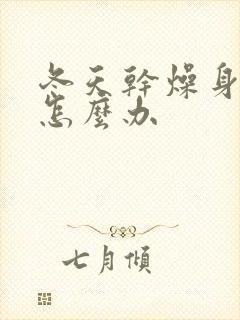 冬天幹燥身
怎麼办
七月傾